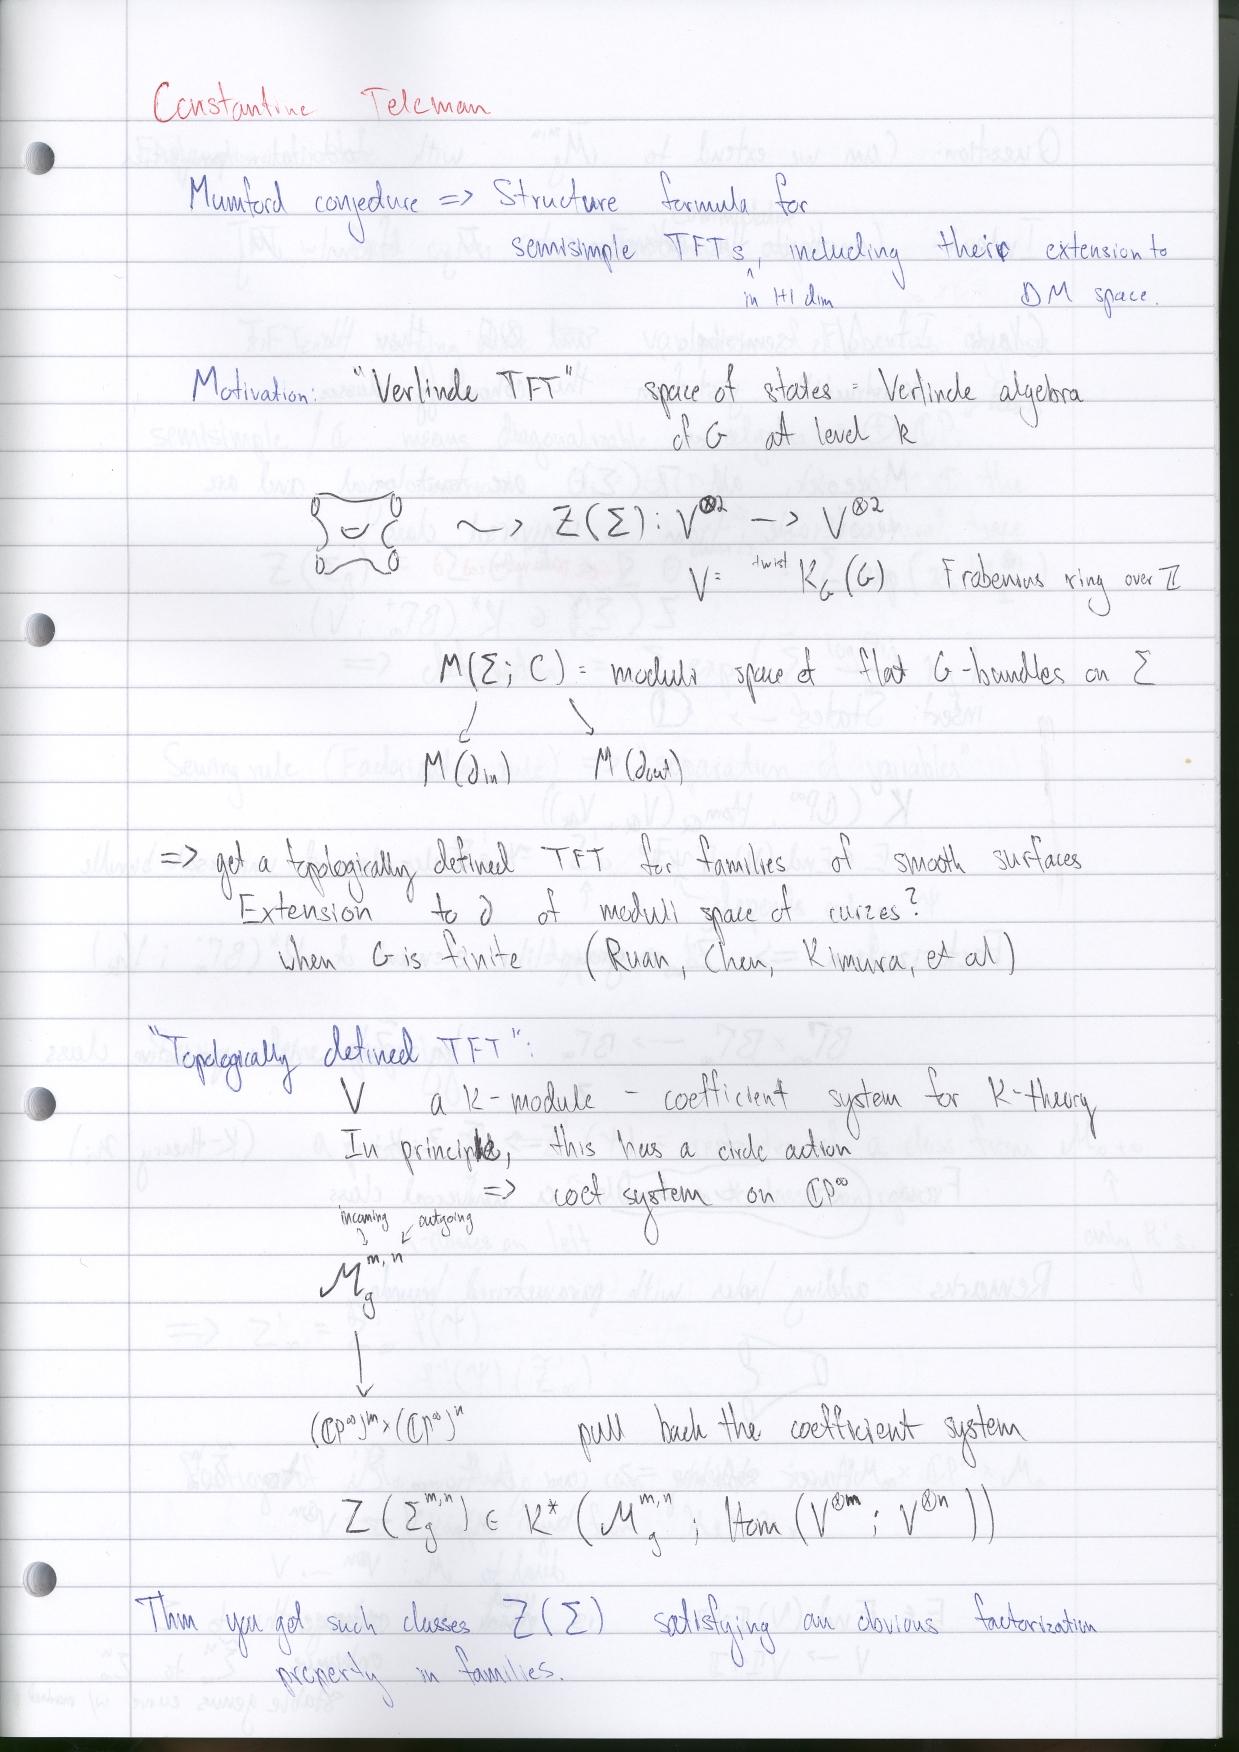 Constantine Teleman
Mumford conjecture => Structure formula for
semisimple TFTs, including their extension to
^ in 1+1 dim DM space.
Motivation: "Verlinde TFT" space of states = Verlinde algebra
of G at level k
~> Z(Σ): V^{⊗2} -> V^{⊗2}
V = ^{twist}K_G(G) Frobenius ring over ℤ
M(Σ; C) = moduli space of flat G-bundles on Σ
M(∂in) M(∂out)
=> get a topologically defined TFT for families of smooth surfaces
Extension to ∂ of moduli space of curves?
when G is finite (Ruan, Chen, Kimura, et al)
"Topologically defined TFT":
V a K-module - coefficient system for K-theory
In principle, this has a circle action
=> coef system on ℂP^∞
incoming outgoing
M_g^{m,n}
(ℂP^∞)^m × (ℂP^∞)^n pull back the coefficient system
Z(Σ_g^{m,n}) ∈ K*(M_g^{m,n}; Hom(V^{⊗m}; V^{⊗n}))
Thm you get such classes Z(Σ) satisfying an obvious factorization
property in families.